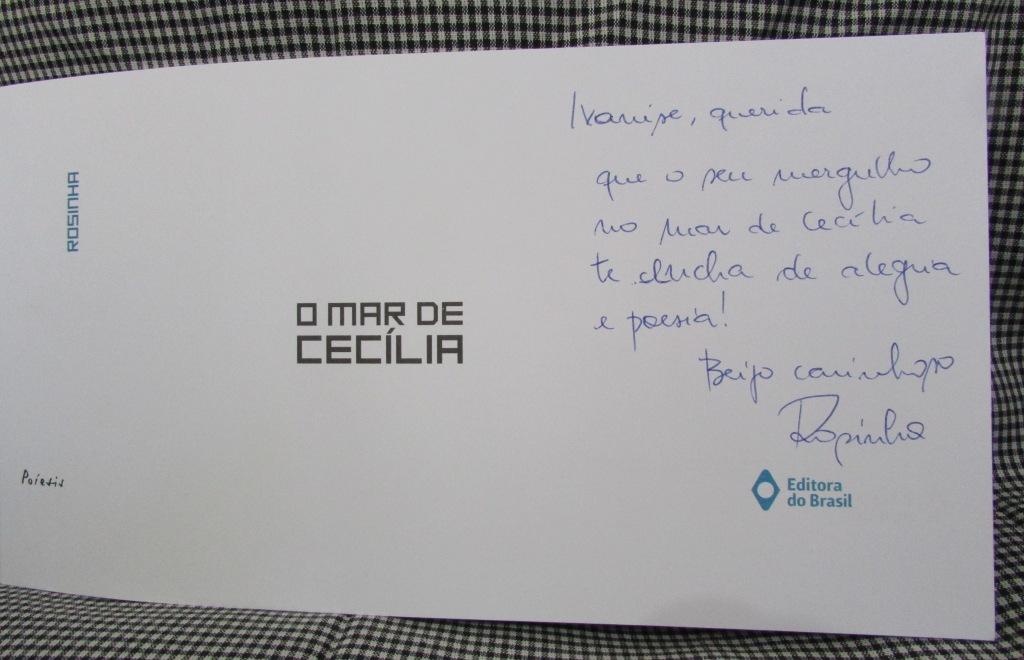 ROSINHA
O MAR DE
CECÍLIA
Poíesis
Ivanise, querida
que o seu mergulho
no mar de Cecília
te encha de alegria
e poesia!
Beijo carinhoso
Rosinha
Editora
do Brasil